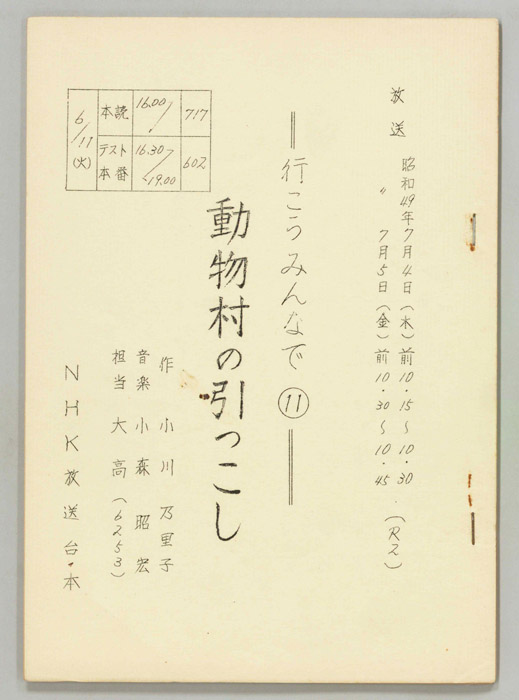 放送 昭和49年7月4日(木)前10・15〜10・30
〃 7月5日(金)前10・30〜10・45 (R2)
行こうみんなで ⑪
動物村の引っこし
作 小川乃里子
音楽 小森昭宏
担当 大高(6253)
NHK放送台本
6/11(火)
本読 16.00/ 717
テスト本番 16.30/〜19.00 602